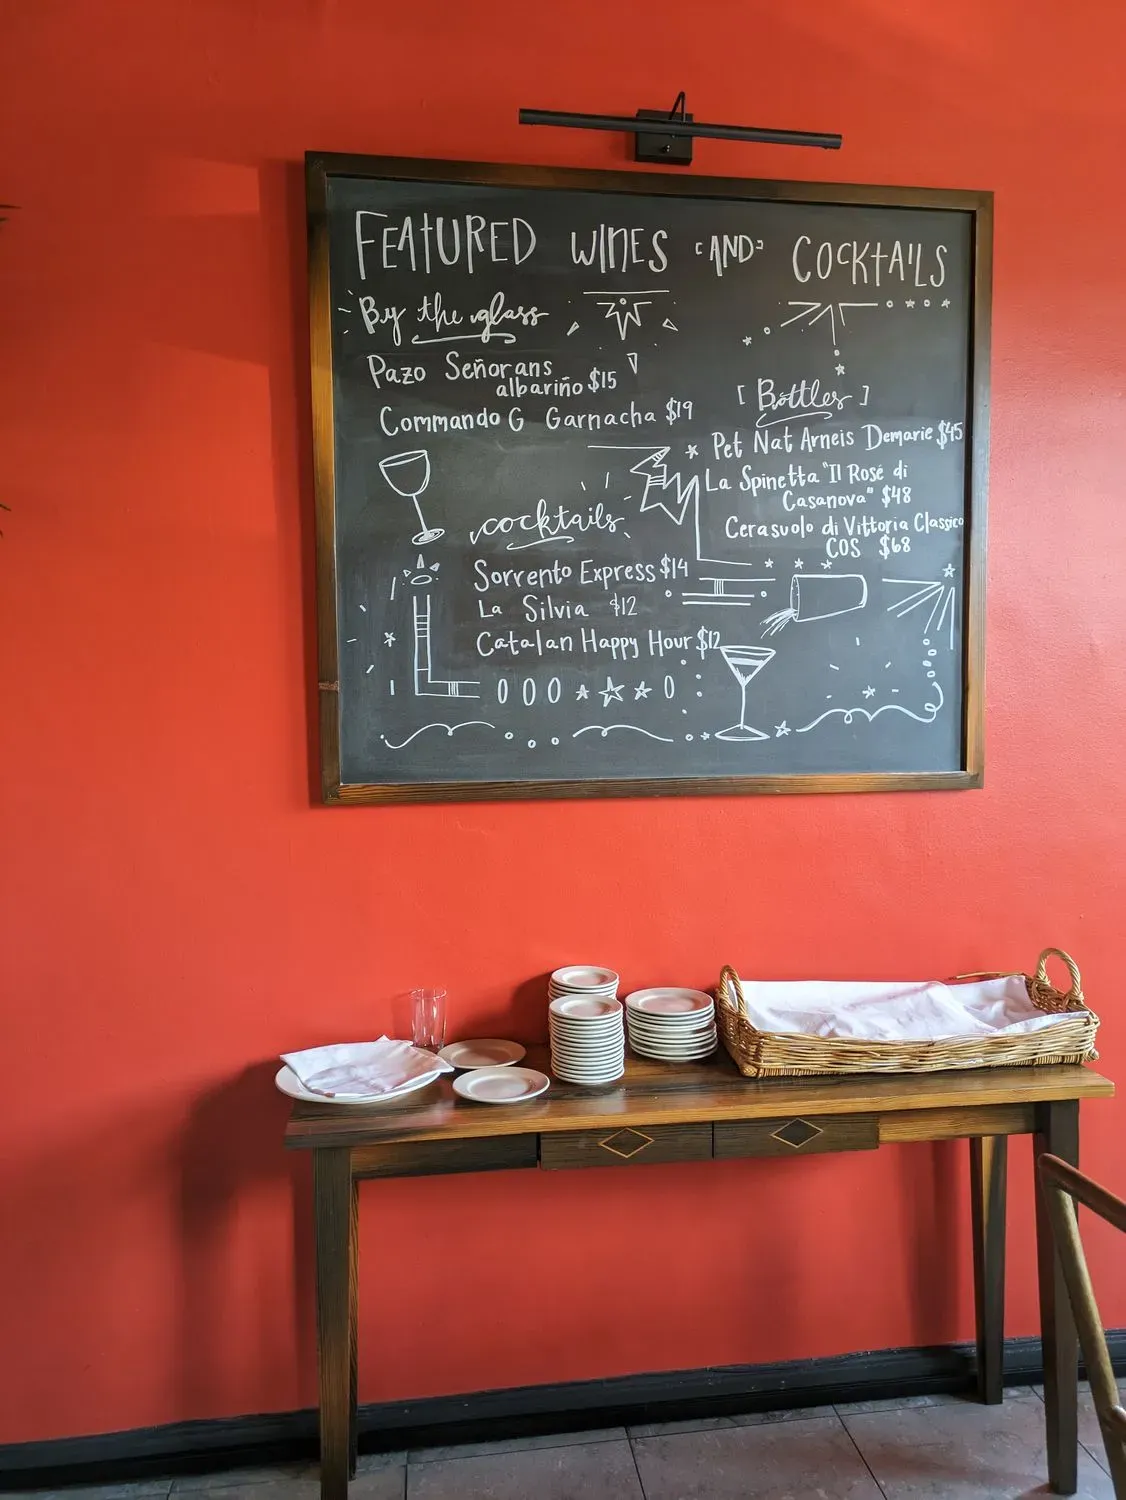 FEATURED WINES AND COCKTAILS
By the glass
Pazo Señorans
albariño $15
Commando G Garnacha $19
cocktails
Sorrento Express $14
La Silvia $12
Catalan Happy Hour $12
[Bottles]
Pet Nat Arneis Demarie $45
La Spinetta "Il Rosé di
Casanova" $48
Cerasuolo di Vittoria Classico
COS $68